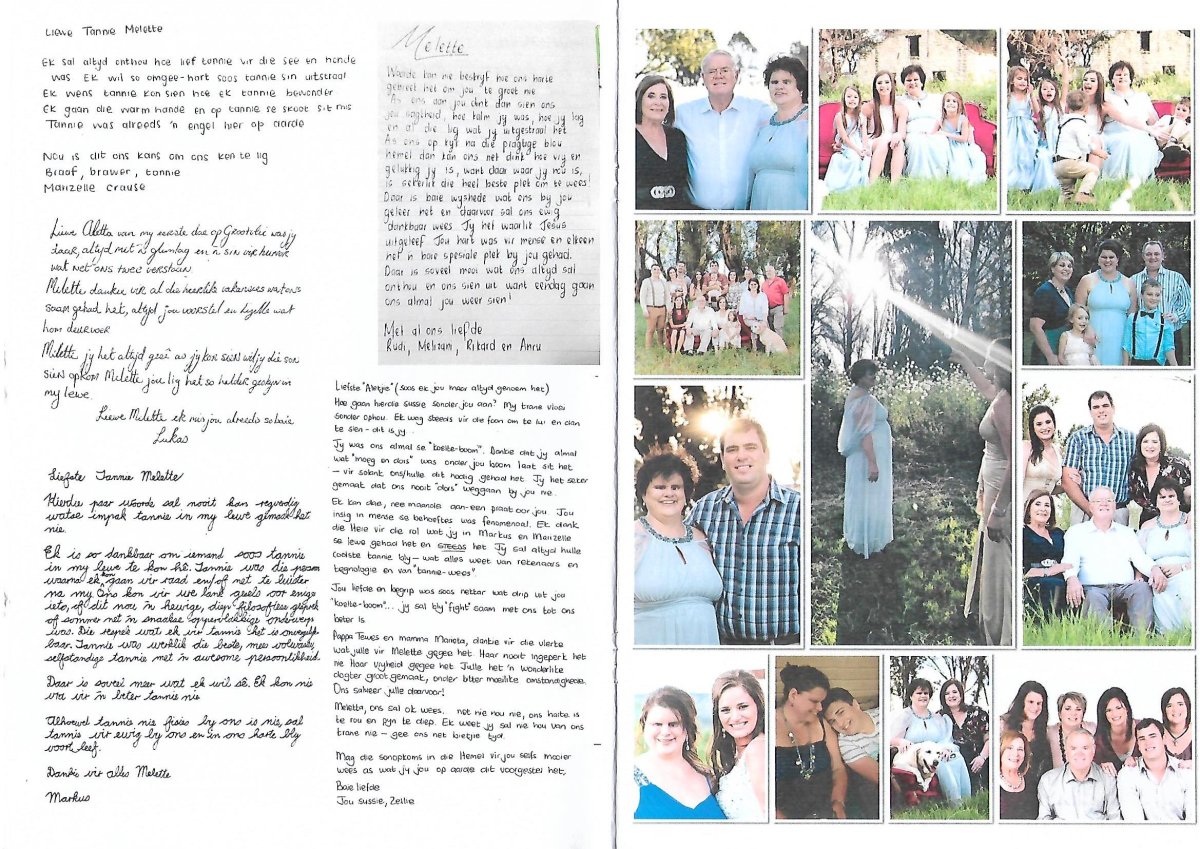 Liewe Tannie Melette
Ek sal altyd onthou hoe lief tannie vir die see en honde
was Ek wil so omgee-hart soos tannie s'n uitstraal
Ek wens tannie kon sien hoe ek tannie bewonder
Ek gaan die warm hande en op tannie se skoot sit mis
Tannie was alreeds 'n engel hier op aarde
Nou is dit ons kans om ons ken te lig
Braaf, brawer, tannie
Marizelle Crause
Liewe Aletta van my eerste dae op Grootvlei was jy
daar, altyd met 'n glimlag en 'n sin vir humor
wat net ons twee verstaan.
Melette dankie vir al die heerlike vakansies wat ons
saam gehad het, altyd jou voorstel en Lizelle wat
hom deurvoer
Melette jy het altyd gesê as jy kon sien wil jy die son
sien opkom Melette jou lig het so helder geskyn in
my lewe.
Liewe Melette ek mis jou alreeds so baie
Lukas
Liefste Tannie Melette
Hierdie paar woorde sal nooit kan regverdig
watse impak tannie in my lewe gemaak het
nie.
Ek is so dankbaar om iemand soos tannie
in my lewe te kon hê. Tannie was die persoon
waarna ek kon gaan vir raad en/of net te luister
na my Ons kon vir ure lank gesels oor enige
iets, of dit nou 'n hewige, diep filosofiese gesprek
of sommer net 'n snaakse oppervlakkige onderwerp
was. Die respek wat ek vir tannie het is onvergelyk-
baar. Tannie was werklik die beste, mees volwasse,
selfstandige tannie met 'n awesome persoonlikheid.
Daar is soveel meer wat ek wil sê. Ek kon nie
vra vir 'n beter tannie nie
Alhoewel tannie nie fisies by ons is nie, sal
tannie vir ewig by ons en in ons harte bly
voort leef.
Dankie vir alles Melette
Markus
Melette
Woorde kan nie beskryf hoe ons harte
gebreek het om jou te groet nie
As ons aan jou dink dan sien ons
jou sagtheid, hoe kalm jy was, hoe jy lag
en al die lig wat jy uitgestraal het
As ons op kyk na die pragtige blou
hemel dan kan ons net dink hoe vry en
gelukkig jy is, want daar waar jy nou is,
is sekerlik die heel beste plek om te wees!
Daar is baie wyshede wat ons by jou
geleer het en daarvoor sal ons ewig
dankbaar wees Jy het waarlik Jesus
uitgeleef Jou hart was vir mense en elkeen
het 'n baie spesiale plek by jou gehad.
Daar is soveel mooi wat ons altyd sal
onthou en ons sien uit want eendag gaan
ons almal jou weer sien!
Met al ons liefde
Rudi, Melizam, Rikard en Anru
Liefste "Aletjie" (soos ek jou maar altyd genoem het)
Hoe gaan hierdie sussie sonder jou aan? My trane vloei
sonder ophou. Ek wag steeds vir die foon om te lui en dan
te sien - dit is jy.
Jy was ons almal se "koelte-boom". Dankie dat jy almal
wat "moeg en dors" was onder jou boom laat sit het
- vir solank ons/hulle dit nodig gehad het. Jy het seker
gemaak dat ons nooit "dors" weggaan by jou nie.
Ek kan dae, nee maande aan-een praat oor jou. Jou
insig in mense se behoeftes was fenomenaal. Ek dank
die Here vir die rol wat jy in Markus en Marizelle
se lewe gehad het en STEEDS het Jy sal altyd hulle
coolste tannie bly - wat alles weet van rekenaars en
tegnologie en van "tannie-wees".
Jou liefde en begrip was soos nektar wat drip uit jou
"koelte-boom"... jy sal bly "fight" saam met ons tot ons
beter is.
Pappa Tewes en mamma Marieta, dankie vir die vlerke
wat julle vir Melette gegee het. Haar nooit ingeperk het
nie Haar vryheid gegee het Julle het 'n wonderlike
dogter groot gemaak, onder bitter moeilike omstandighede.
Ons salueer julle daarvoor!
Meletta, ons sal ok wees. not nie nou nie, ons harte is
te rou en pyn te diep. Ek weet jy sal nie hou van ons
trane nie - gee ons net bietjie tyd.
Mag die sonopkoms in die Hemel vir jou selfs mooier
wees as wat jy jou op aarde dit voorgestel het,
Baie liefde
Jou sussie, Zellie